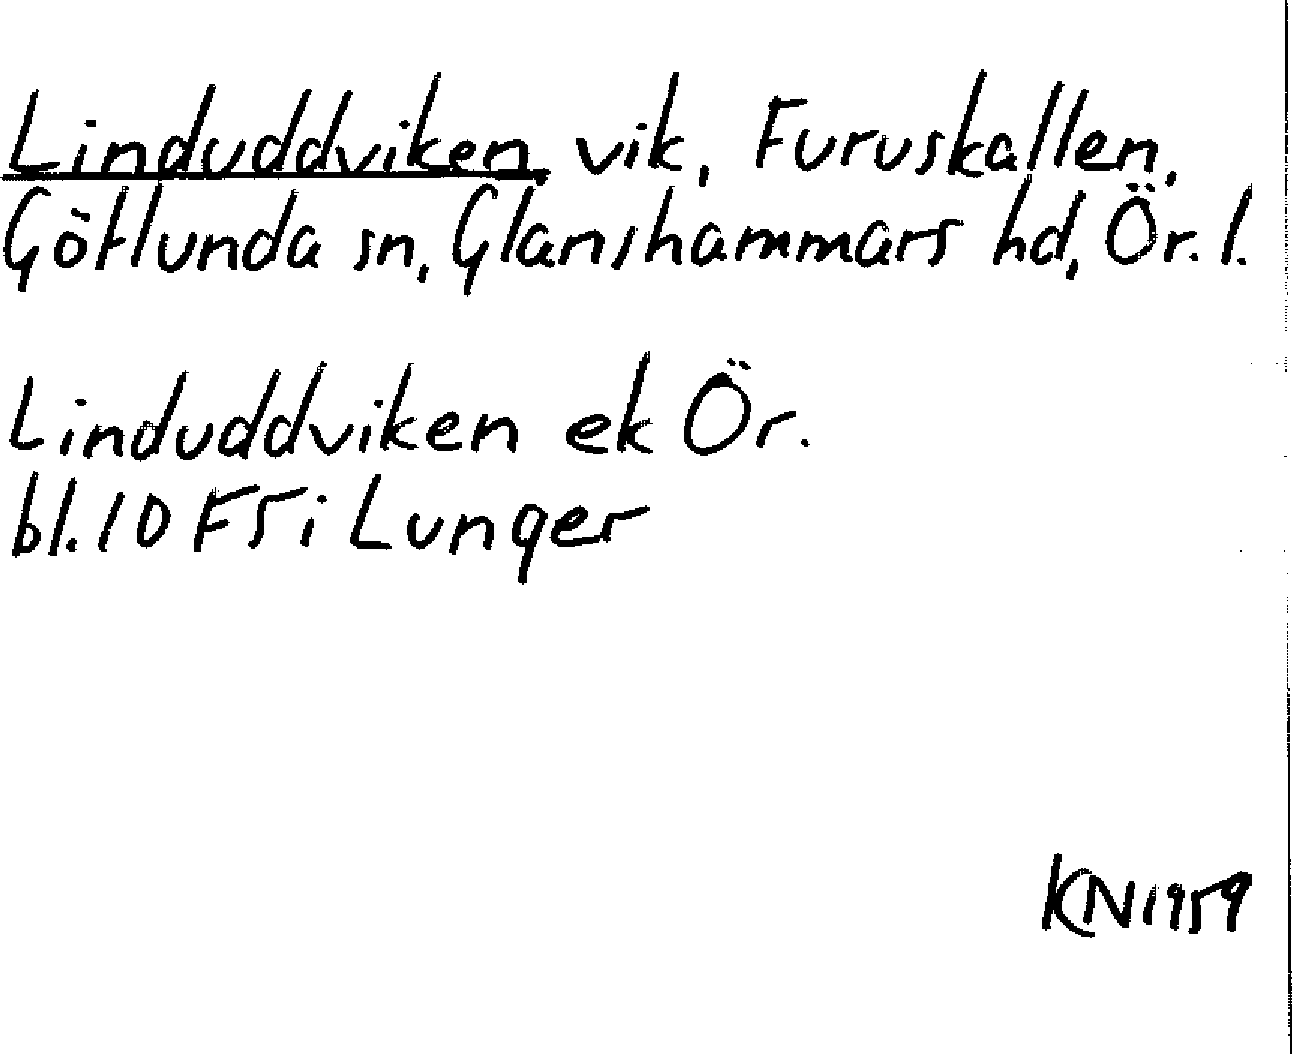 Linduddviken, vik, Furuskallen,
Götlunda sn, Glanshammars hd, Ör. l.
Linduddviken ek Ör.
bl. 10 F5 i Lunger
KN 1959